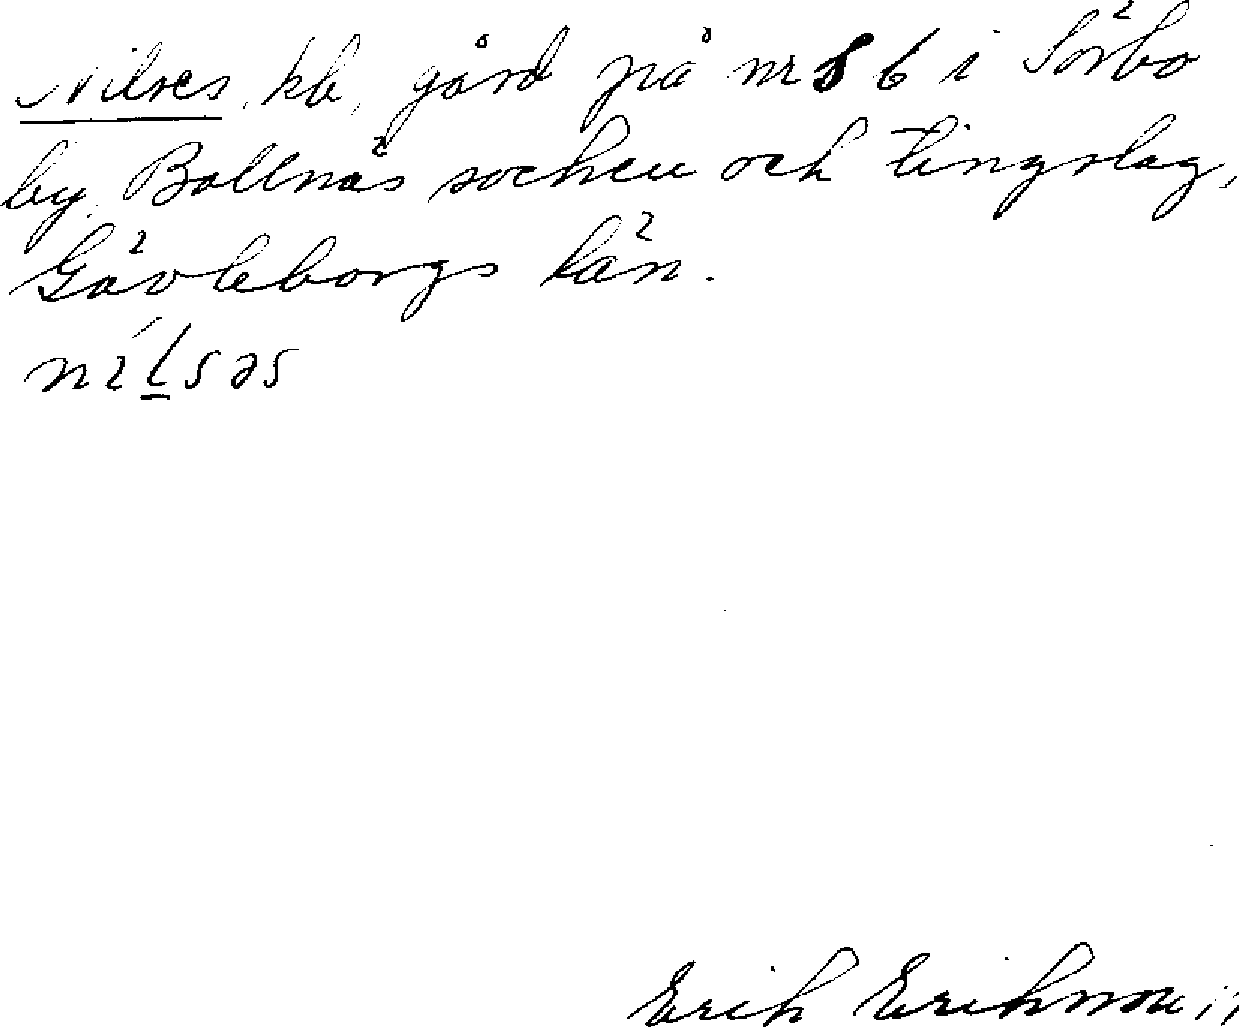 Nilses, kb, gård på nr 8 6 i Sörbo
by, Bollnäs socken och tingslag,
Gävleborgs län.
Erik Eriksson